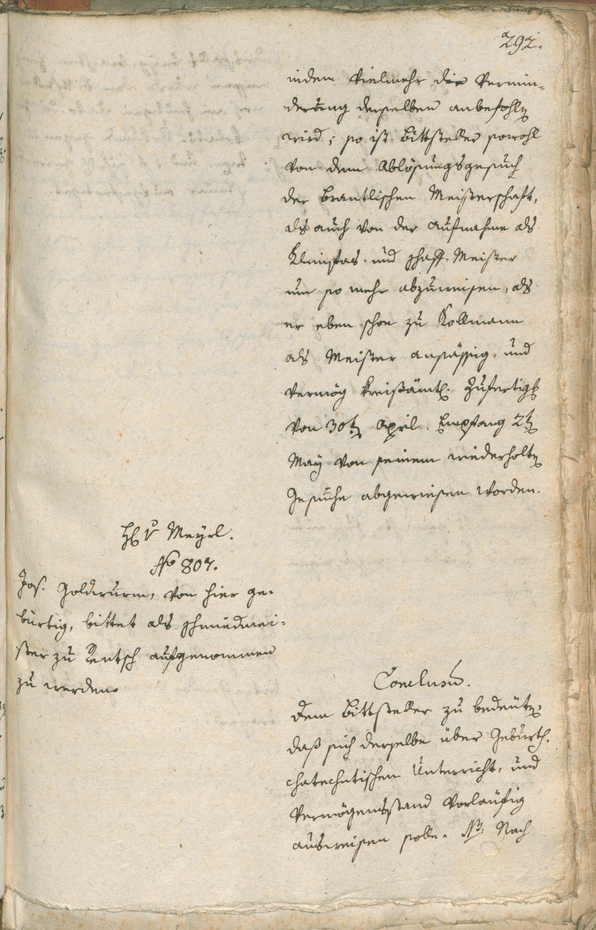 292.
indem vielmehr die Vermin-
derung derselben anbefohlen
wird; so ist Bittsteller sowohl
von dem Ablösungsgesuch
der Brantlischen Meisterschaft,
als auch von der Aufnahme als
und Meister
um so mehr abzuweisen, als
er eben schon zu Kollmann
als Meister ansässig, und
vermög Kreisämtl.
von 30t April. Empfang 2t
May von seinem wiederholten
Gesuche abgewiesen worden.
H. v Meyrl.
No 807.
Jos. Goldwurm, von hier ge-
bürtig, bittet als Schmiedmei-
ster zu Rentsch aufgenommen
zu werden.
Conclusum.
Dem Bittsteller zu bedeuten,
daß sich derselbe über Geburth,
chatechetischen Unterricht, und
Vermögensstand vorläufig
ausweisen solle. NB: Nach